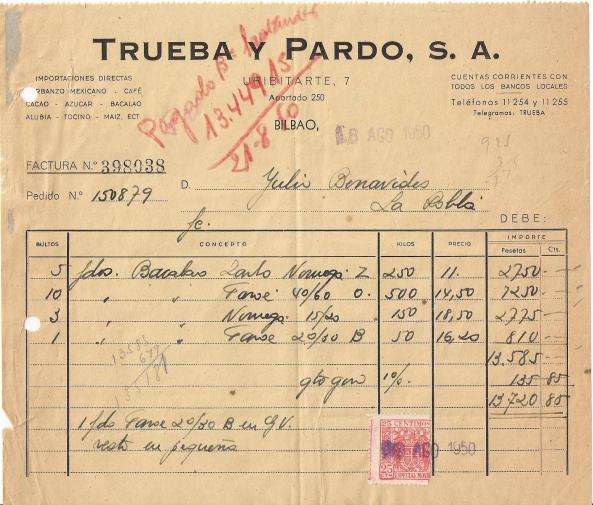 TRUEBA Y PARDO, S. A.
IMPORTACIONES DIRECTAS
GARBANZO MEXICANO - CAFÉ
CACAO - AZUCAR - BACALAO
ALUBIA - TOCINO - MAIZ, ECT
URIBITARTE, 7
Apartado 250
BILBAO,
18 AGO 1950
CUENTAS CORRIENTES CON
TODOS LOS BANCOS LOCALES
Teléfonos 11254 y 11255
Telegramas: TRUEBA
Pagado
13.449,15
21-8-50
FACTURA N.º 398038
Pedido N.º 150879
D. Julio Benavides
La Robla
DEBE:
BULTOS CONCEPTO KILOS PRECIO IMPORTE
Pesetas Cts.
5 fdos. Bacalao Zarbo Noruega Z 250 11. 2750
10 " " Faroe 40/60 O. 500 14,50 7250
3 " " Noruega 15/20 150 18,50 2775
1 " " Faroe 20/30 B 50 16,20 810
13.585
gtos 1% 135 85
13720 85
1 fdo Faroe 20/30 B en G.V.
resto en pequeña
13585
25 CENTIMOS
ESPECIAL MOVIL
18 AGO 1950